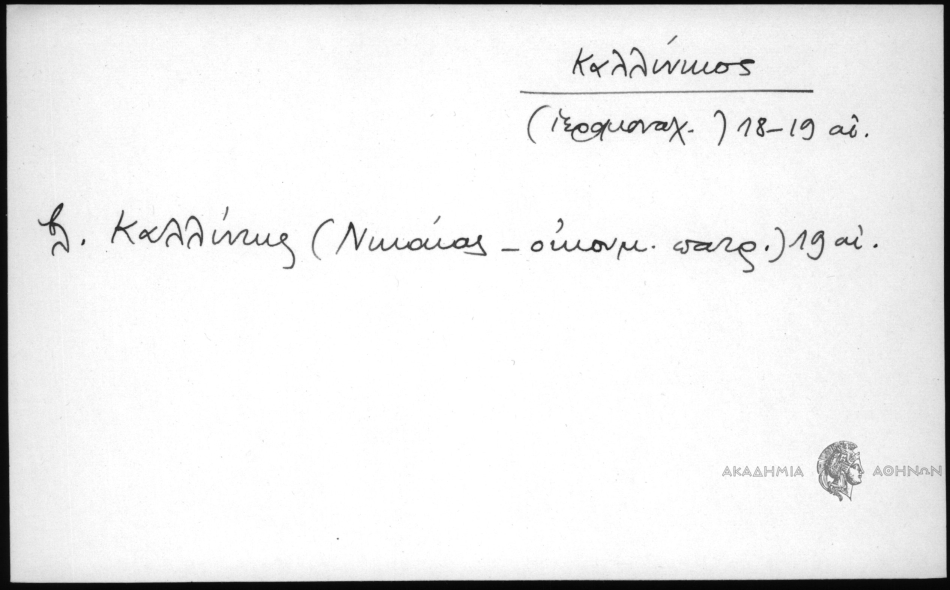 Καλλίνικος
(ἱερομοναχ.) 18-19 αἰ.
βλ. Καλλίνικος (Νικαίας - οἰκουμ. πατρ.) 19 αἰ.
ΑΚΑΔΗΜΙΑ ΑΘΗΝΩΝ